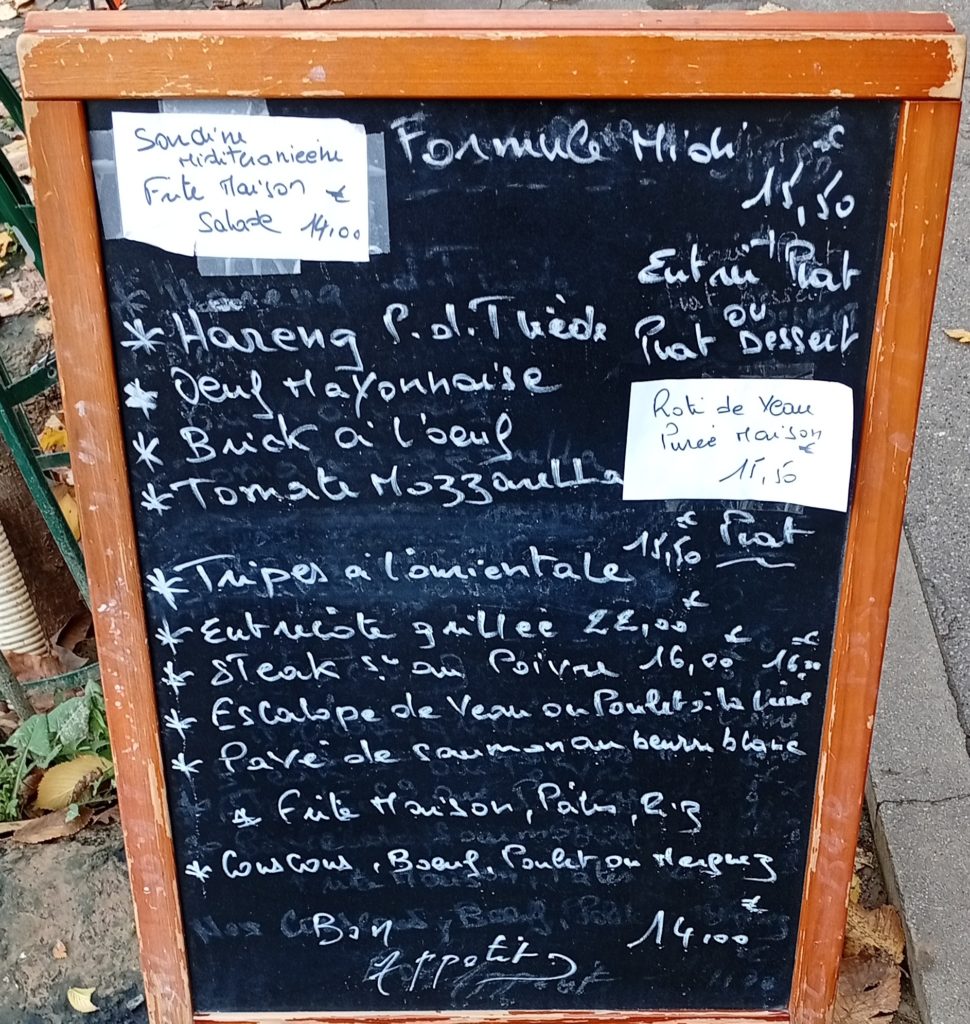 Sardine
Méditeranieene
Frite Maison €
Salade 14,00
Formule Midi €
15,50
Entrée Plat
ou
Plat Dessert
* Hareng P.d.T tiède
* Oeuf Mayonnaise
* Brick à l'oeuf
* Tomate Mozzarella
Roti de Veau
Purée Maison €
15,50
€ Plat
15,50
* Tripes a l'orientale
* Entrecôte grillée 22,00 €
* Steak au Poivre 16,00 € 16,00 €
* Escalope de Veau ou Poulet à la crème
* Pavé de saumon au beurre blanc
* Frite Maison, Pâtes, Riz
* Couscous, Boeuf, Poulet ou Merguez
€
Bon 14,00
Appetit